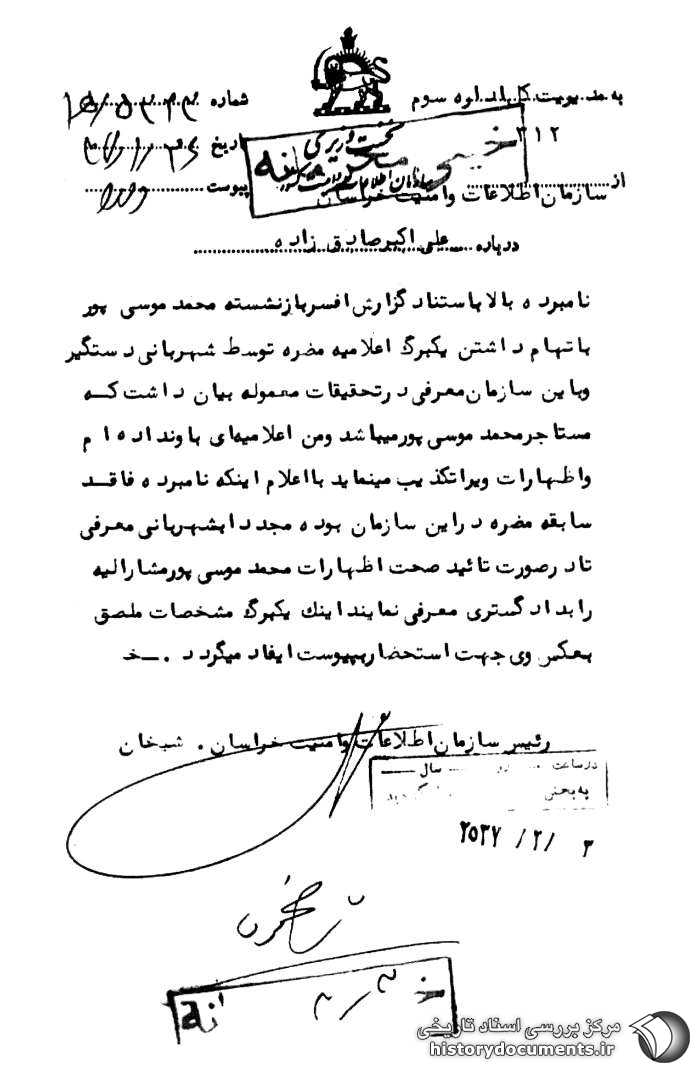 به مدیریت کل اداره سوم
۳۱۲
شماره
تاریخ
پیوست
نخست وزیری
سازمان اطلاعات و امنیت کشور
خیلی محرمانه
از سازمان اطلاعات وامنیت خراسان
درباره علی اکبرصادق زاده
نامبرده بالاباستناد گزارش افسربازنشسته محمد موسی پور
باتهام داشتن یکبرگ اعلامیه مضره توسط شهربانی دستگیر
وباین سازمان معرفی درتحقیقات معموله بیان داشت که
مستاجرمحمد موسی پورمیباشد ومن اعلامیه‌ای باونداده ام
واظهارات ویراتکذیب مینماید بااعلام اینکه نامبرده فاقد
سابقه مضره دراین سازمان بوده مجددابشهربانی معرفی
تادرصورت تائید صحت اظهارات محمد موسی پورمشارالیه
رابدادگستری معرفی نمایند اینك یکبرگ مشخصات ملصق
بعکس وی جهت استحضاربپیوست ایفاد میگردد .ــخ
رئیس سازمان اطلاعات وامنیت خراسان . شیخان
در ساعت
سال
به بخش
۲۵۳۷ /۲/ ۳
مرکز بررسی اسناد تاریخی
historydocuments.ir